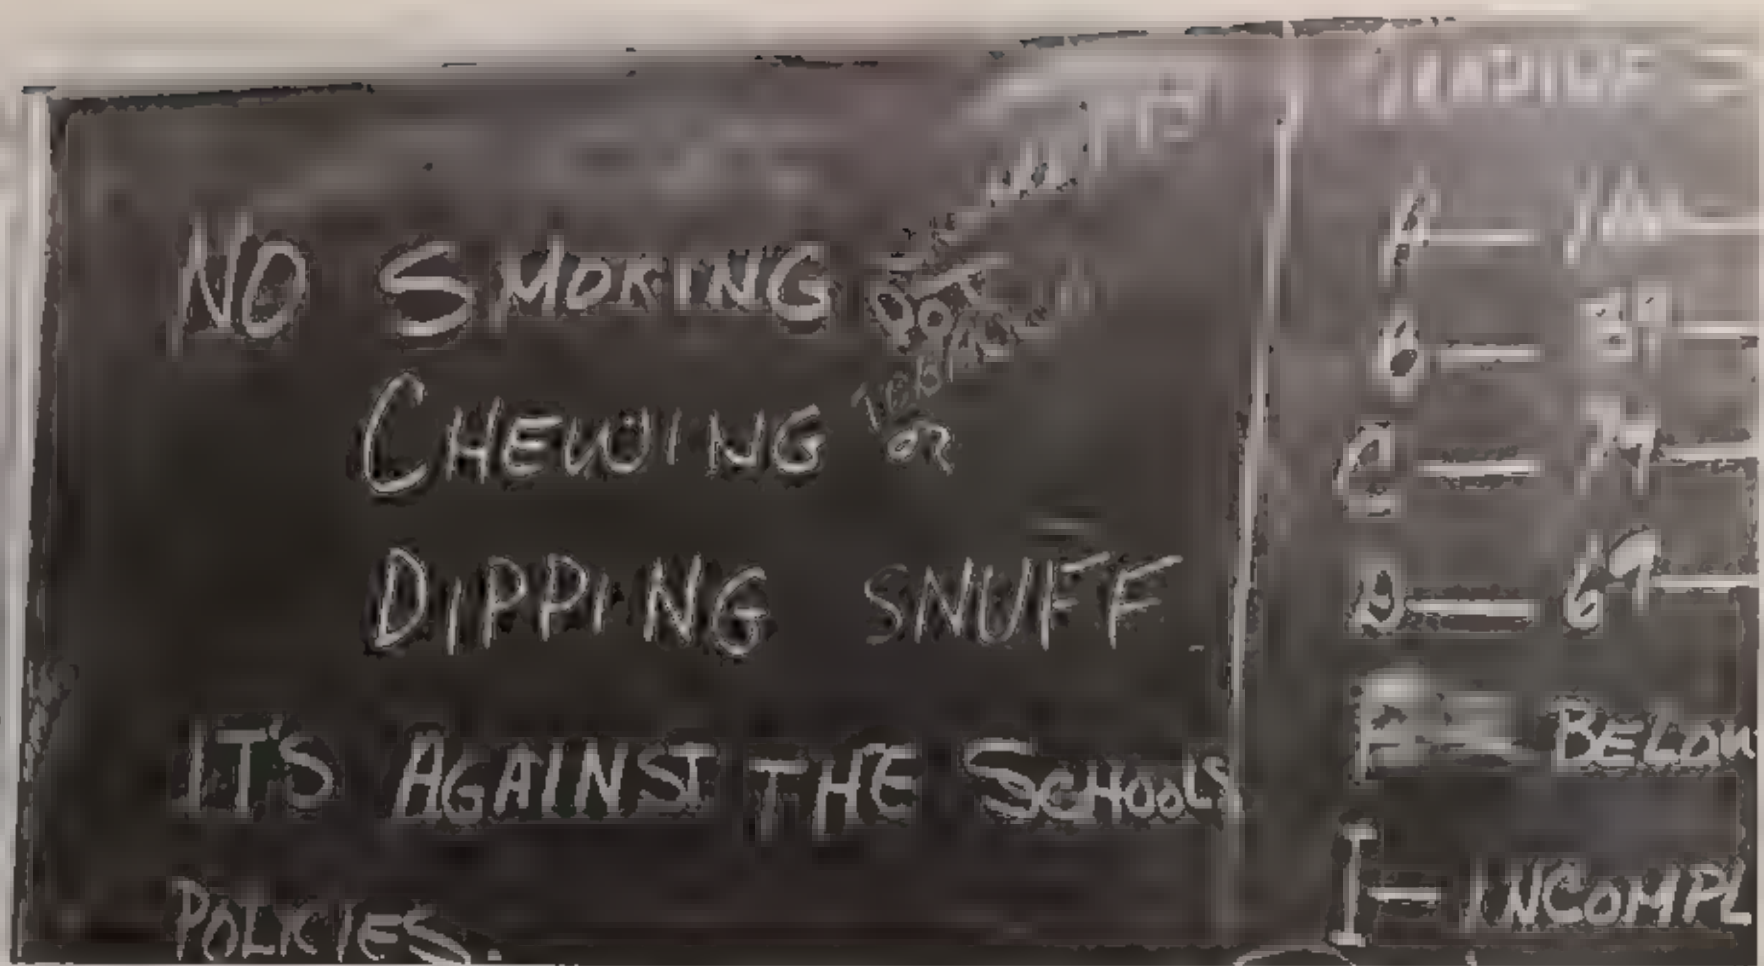 NO SMOKING
CHEWING OR
DIPPING SNUFF
IT'S AGAINST THE SCHOOLS
POLICIES.
A — 100
B — 89
C — 79
D — 69
F — BELOW
I — INCOMPL